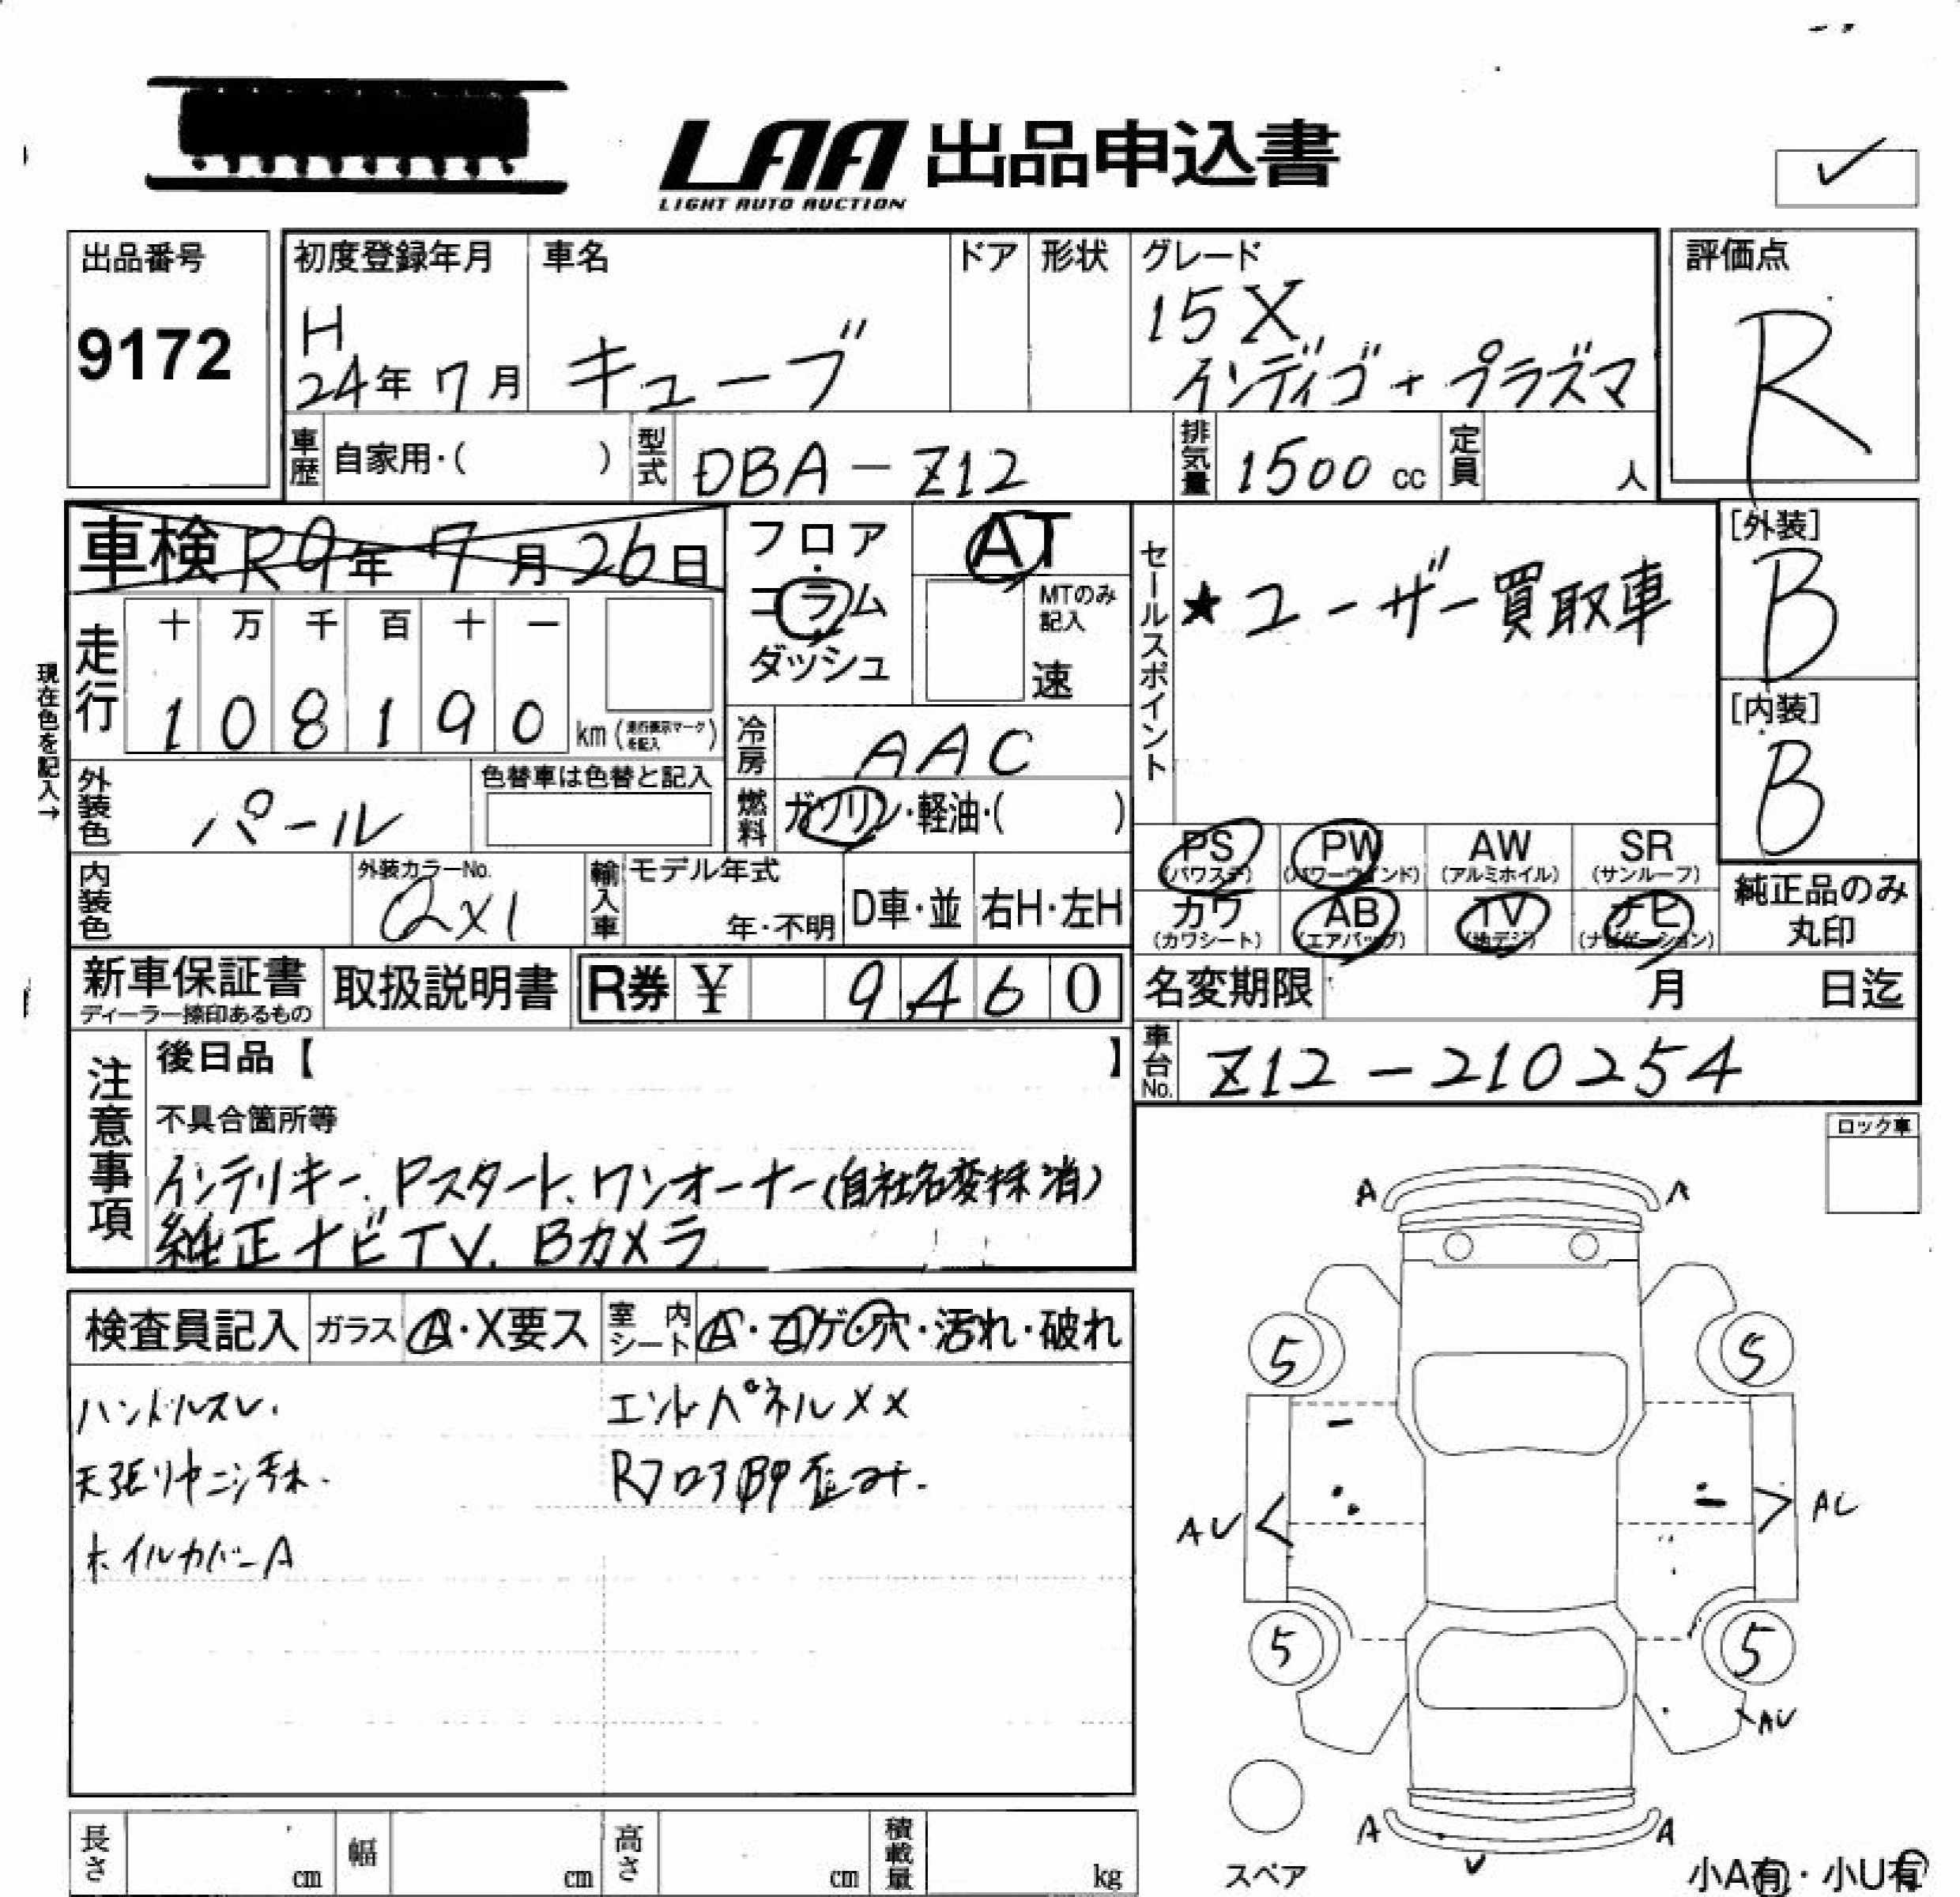 LAA 出品申込書
LIGHT AUTO AUCTION
出品番号
9172
初度登録年月
H
24年 7月
車名
キューブ
ドア
形状
グレード
15X
インディゴ+プラズマ
評価点
R
車歴 自家用・( )
型式 DBA-Z12
排気量 1500 cc
定員 人
車検 R9年 7月 26日
フロア・コラム・ダッシュ
AT
MTのみ記入
速
走行 十 万 千 百 十 一
1 0 8 1 9 0 km (走行表示マークを記入)
現在色を記入→
冷房 AAC
外装色 パール
色替車は色替と記入
燃料 ガソリン・軽油・( )
内装色
外装カラーNo.
QX1
輸入車 モデル年式
年・不明
D車・並 右H・左H
セールスポイント
★ユーザー買取車
[外装]
B
[内装]
B
PS (パワステ)
PW (パワーウィンド)
AW (アルミホイル)
SR (サンルーフ)
カワ (カワシート)
AB (エアバッグ)
TV (地デジ)
ナビ (ナビゲーション)
純正品のみ丸印
新車保証書
ディーラー捺印あるもの
取扱説明書
R券 ¥ 9460
名変期限 月 日迄
車台No. Z12-210254
注意事項
後日品【 】
不具合箇所等
インテリキー、Pスタート、ワンオーナー(自社名変抹消)
純正ナビTV、Bカメラ
検査員記入
ガラス A・X要ス
室内シート A・コゲ・穴・汚れ・破れ
ハンドルスレ.
天張リヤニジ汚れ.
ホイルカバーA
エンドパネルXX
Rフロア凹歪み.
ロック車
A A
5 5
AU AU
5 5
AU
A A
U
スペア
小A有・小U有
長さ cm
幅 cm
高さ cm
積載量 kg